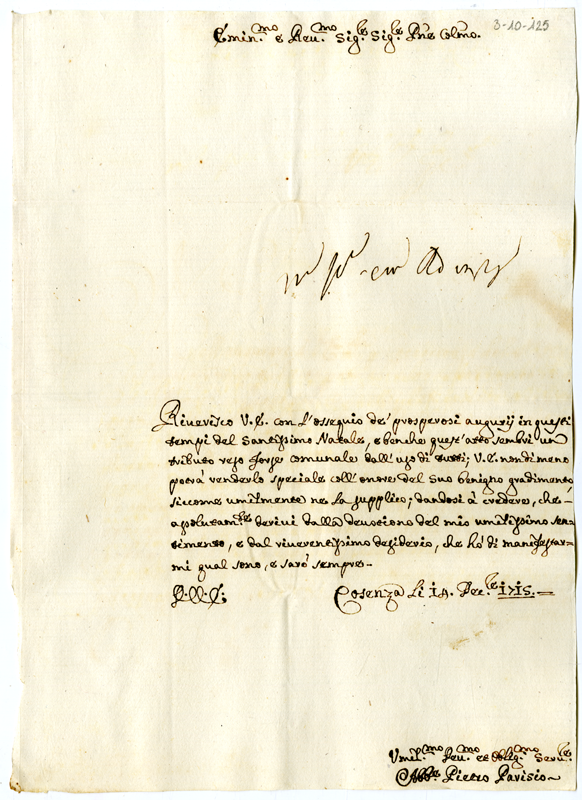 3-10-125
Emin.mo e Reu.mo Sig.e Sig.e Pñe Colmo.
Riuerisco V.E. con l'ossequio de' prosperosi augurij in questi
tempi del Santissimo Natale, e benche quest'atto sembri un
tributo reso forse comunale dall'uso di tutti; V.E. nondimeno
potrà renderlo speciale coll'onore del suo benigno gradimento,
siccome umilmente ne la supplico; dandosi à credere, che
assolutam.te deriui dalla deuozione del mio umilissimo sen-
timento, e dal riuerentissimo desiderio, che hò di manifestar-
mi qual sono, e sarò sempre
Cosenza li 14. Dec.e 1715.
Vmil.mo Deu.mo et Oblig.mo Seru.e
Abb.e Pietro Parisio